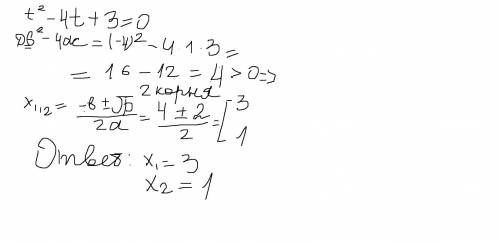 t² - 4t + 3 = 0
Dв² - 4ac = (-4)² - 4 1 · 3 =
= 16 - 12 = 4 > 0 =>
2 корня
x₁,₂ = -в ± √D / 2a = 4 ± 2 / 2 = [ 3 1
Ответ: x₁ = 3
x₂ = 1